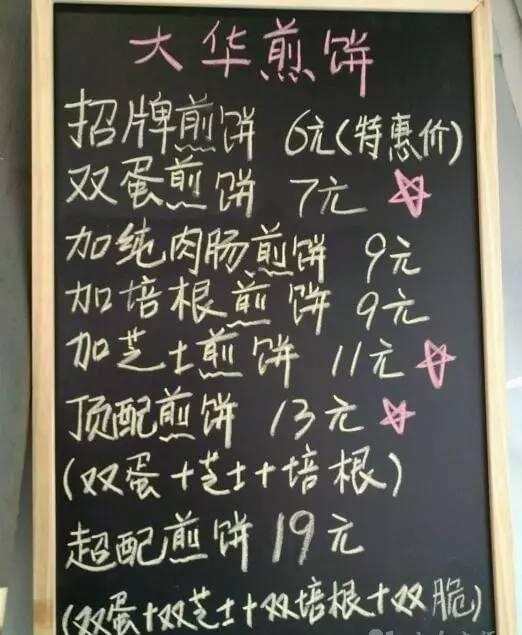 大华煎饼
招牌煎饼 6元(特惠价)
双蛋煎饼 7元
加纯肉肠煎饼 9元
加培根煎饼 9元
加芝士煎饼 11元
顶配煎饼 13元
(双蛋+芝士+培根)
超配煎饼 19元
(双蛋+双芝士+双培根+双脆)